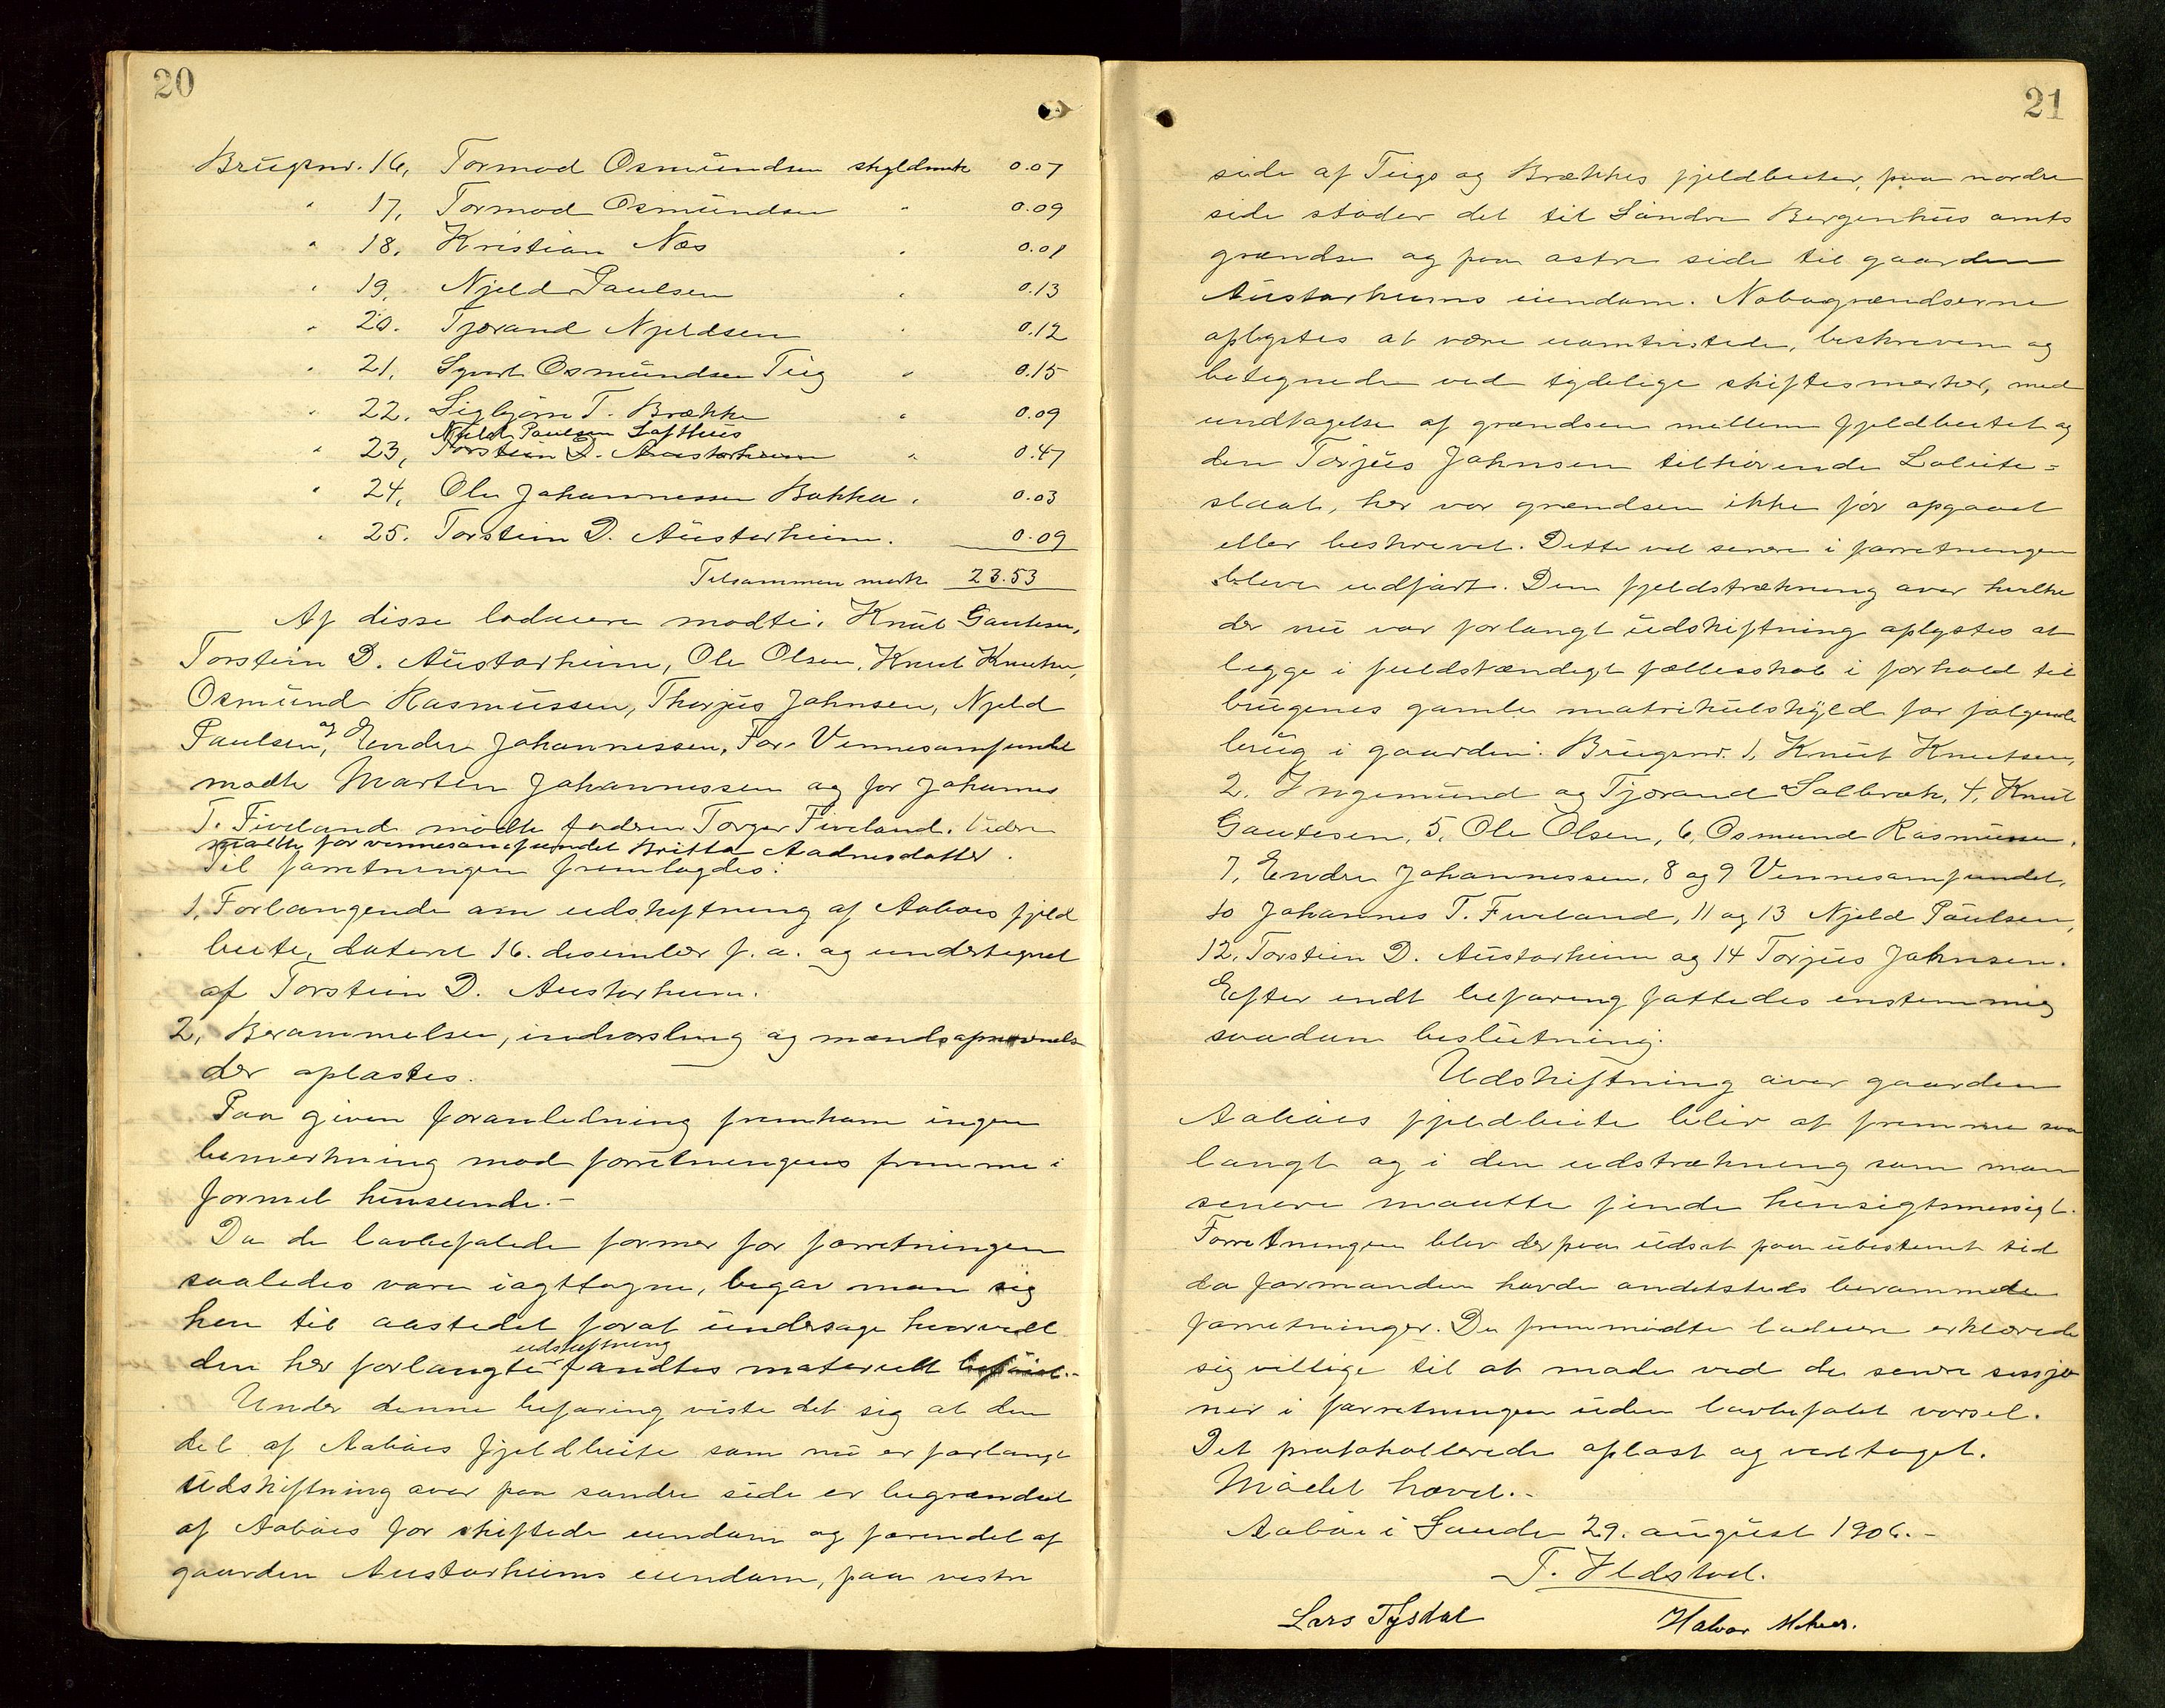 20
Brugsnr. 16, Tormod Osmundsen skyldmark 0.07
" 17, Tormod Osmundsen " 0.09
" 18, Kristian Næs " 0.08
" 19, Njeld Paulsen " 0.13
" 20. Tjørand Njeldsen " 0.12
" 21, Sjurt Osmundsen Teig " 0.15
" 22. Sigbjørn T. Brække " 0.09
Njeld Paulsen Lofthus
" 23, Torstein D. Austarheim " 0.47
" 24, Ole Johannessen Bakka " 0.03
" 25. Torstein D. Austarheim " 0.09
Tilsammen mark 23.53
Af disse lodeiere mødte: Knut Gautesen,
Torstein D. Austarheim, Ole Olsen, Knut Knutsen,
Osmund Rasmussen, Thorjus Johnsen, Njeld
Paulsen, og Endre Johannessen, For Vennesamfundet
mødte Marten Johannessen og for Johannes
T. Fiveland mødte faderen Torger Fiveland. Videre
mødte for vennesamfundet Britta Aadnesdatter.
Til forretningen fremlagdes:
1, Forlangende om udskiftning af Aabøes fjeld
beite, dateret 16. desember f. a. og undertegnet
af Torstein D. Austarheim.
2, Berammelsen, indvarsling og mandsopnævnelse
der oplæstes.
Paa given foranledning fremkom ingen
bemerkning mod forretningens fremme i
formel henseende.-
Da de lovbefalede former for forretningen
saaledes vare iagttagne, begav man sig
hen til aastedet forat undersøge hvorvidt
udskiftning
den her forlangte fandtes materielt beføiet.-
Under denne befaring viste det sig at den
del af Aabøes fjeldbeite som nu er forlangt
udskiftning over paa søndre side er begrændset
af Aabøes før skiftede eiendom og forendel af
gaarden Austarheims eiendom, paa vestre
21
side af Teigs og Brækkes fjeldbeiter, paa nordre
side støder det til Søndre Bergenhus amts
grændse og paa østre side til gaarden
Austarheims eiendom. Nabogrændserne
oplystes at være uomtvistede, beskreven og
betegnede ved tydelige skiftesmerker, med
undtagelse af grændsen mellem fjeldbeitet og
den Torjus Johnsen tilhørende Løleite=
slaat, her var grændsen ikke før opgaaet
eller beskrevet. Dette vil senere i forretningen
blive udført. Den fjeldstrækning over hvilke
der nu var forlangt udskiftning oplystes at
ligge i fuldstændigt fællesskab i forhold til
brugenes gamle matrikulskyld for følgende
brug i gaarden: Brugsnr. 1, Knut Knutsen,
2, Ingemund og Tjørand Solbræk, 4, Knut
Gautesen, 5, Ole Olsen, 6, Osmund Rasmussen,
7, Endre Johannessen, 8 og 9 Vennesamfundet,
10 Johannes T. Fiveland, 11 og 13 Njeld Paulsen,
12, Torstein D. Austarheim og 14 Torjus Johnsen.
Efter endt befaring fattedes enstemmig
saadan beslutning:
Udskiftning over gaarden
Aabøes fjeldbeite bliver at fremme saa
langt og i den udstrækning som man
senere maatte finde hensigtsmessigt.
Forretningen blev derpaa udsat paa ubestemt tid
da formanden havde andetsteds berammede
forretninger. De fremmødte lodeiere erklærede
sig villige til at møde ved de senere sessjo
ner i forretningen uden lovbefalet varsel.
Det protokollerede oplæst og vedtaget.
Mødet hævet.-
Aabøe i Saude 29. august 1906.-
T. Ildstad.
Lars Tysdal Halvor